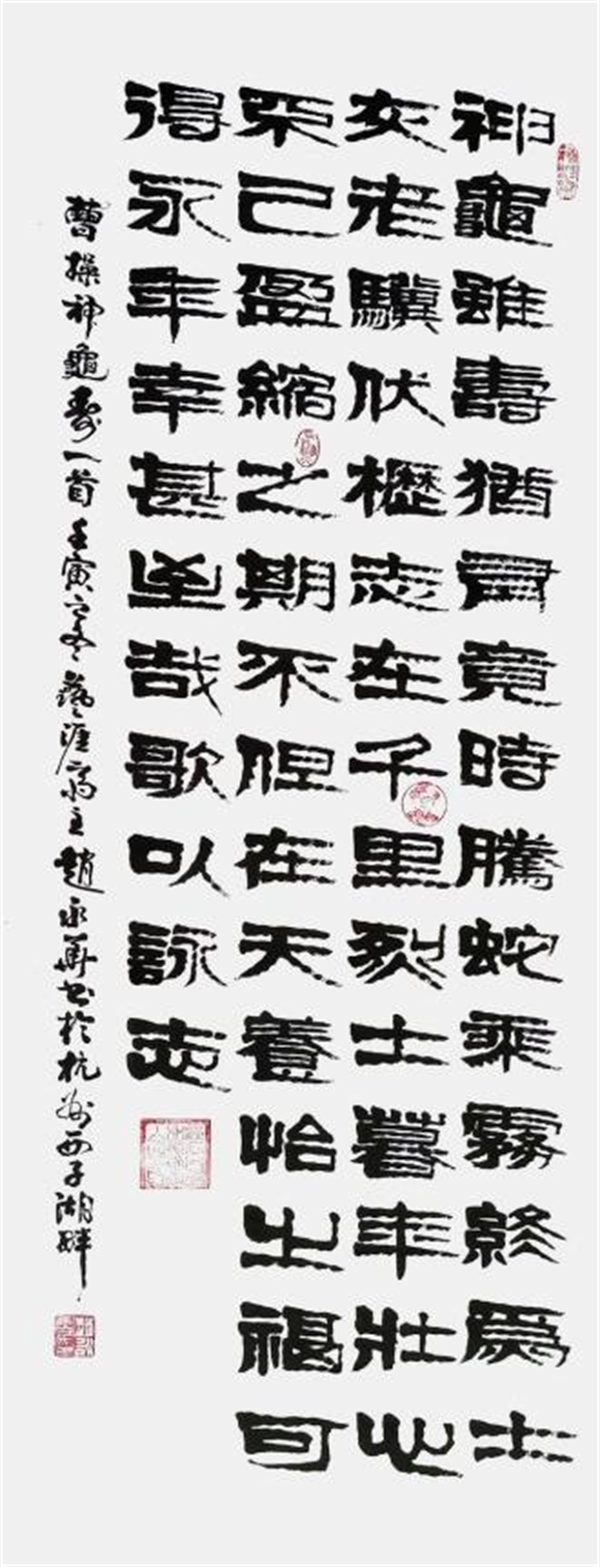 神龜雖壽猶有竟時騰蛇乘霧終為土
灰老驥伏櫪志在千里烈士暮年壯心
不已盈縮之期不但在天養怡之福可
得永年幸甚至哉歌以詠志
曹操神龜壽一首壬寅之冬藝涯齋主趙永華書於杭州西子湖畔